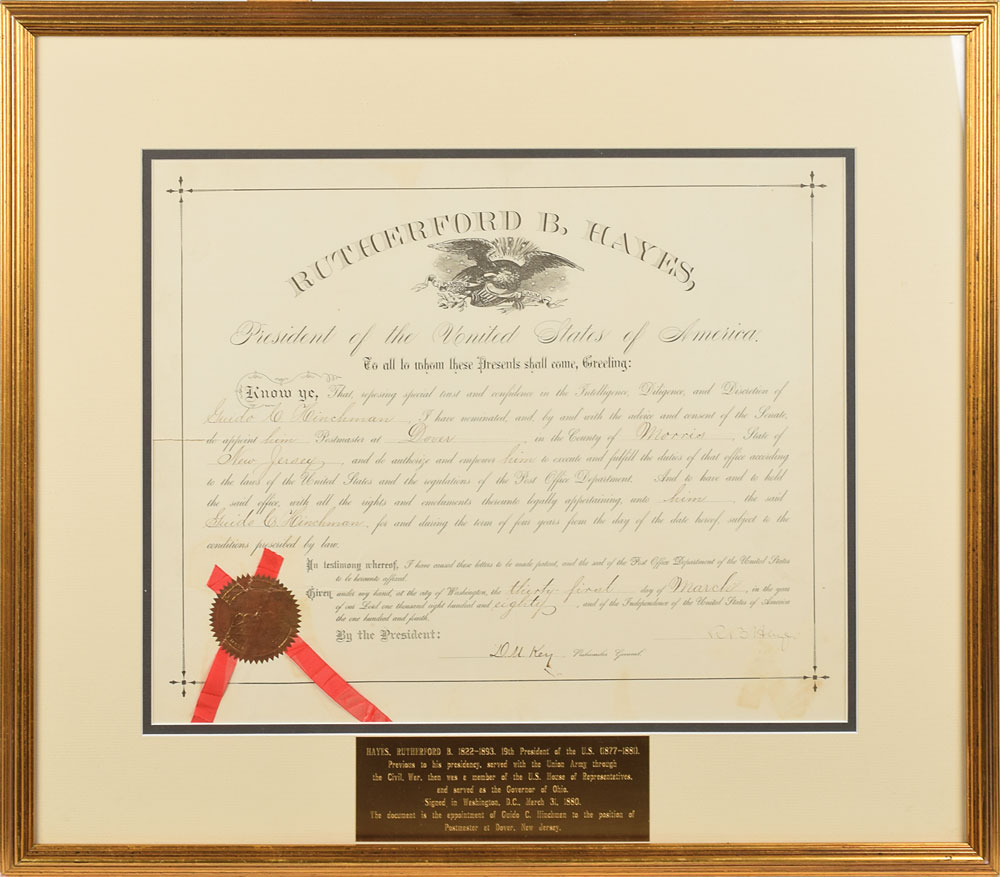 RUTHERFORD B. HAYES,
President of the United States of America.
To all to whom these Presents shall come, Greeting:
Know ye, That, reposing special trust and confidence in the Intelligence, Diligence, and Discretion of
Guido C. Hinchman, I have nominated, and, by and with the advice and consent of the Senate,
do appoint him Postmaster at Dover, in the County of Morris, State of
New Jersey, and do authorize and empower him to execute and fulfill the duties of that office according
to the laws of the United States and the regulations of the Post Office Department. And to have and to hold
the said office, with all the rights and emoluments thereunto legally appertaining, unto him, the said
Guido C. Hinchman, for and during the term of four years from the day of the date hereof, subject to the
conditions prescribed by law.
In testimony whereof, I have caused these letters to be made patent, and the seal of the Post Office Department of the United States
to be hereunto affixed.
Given under my hand, at the city of Washington, the thirty first day of March, in the year
of our Lord one thousand eight hundred and eighty, and of the Independence of the United States of America
the one hundred and fourth.
By the President:
R. B. Hayes
D M Key Postmaster General.
HAYES, RUTHERFORD B. 1822-1893. 19th President of the U.S. (1877-1881).
Previous to his presidency, served with the Union Army through
the Civil War, then was a member of the U.S. House of Representatives,
and served as the Governor of Ohio.
Signed in Washington, D.C., March 31, 1880.
The document is the appointment of Guido C. Hinchman to the position of
Postmaster at Dover, New Jersey.